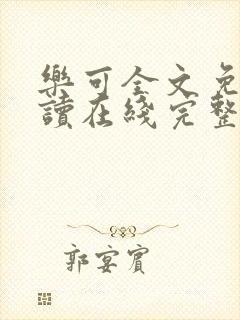 樂可全文免
讀在綫完整
郭宴賓